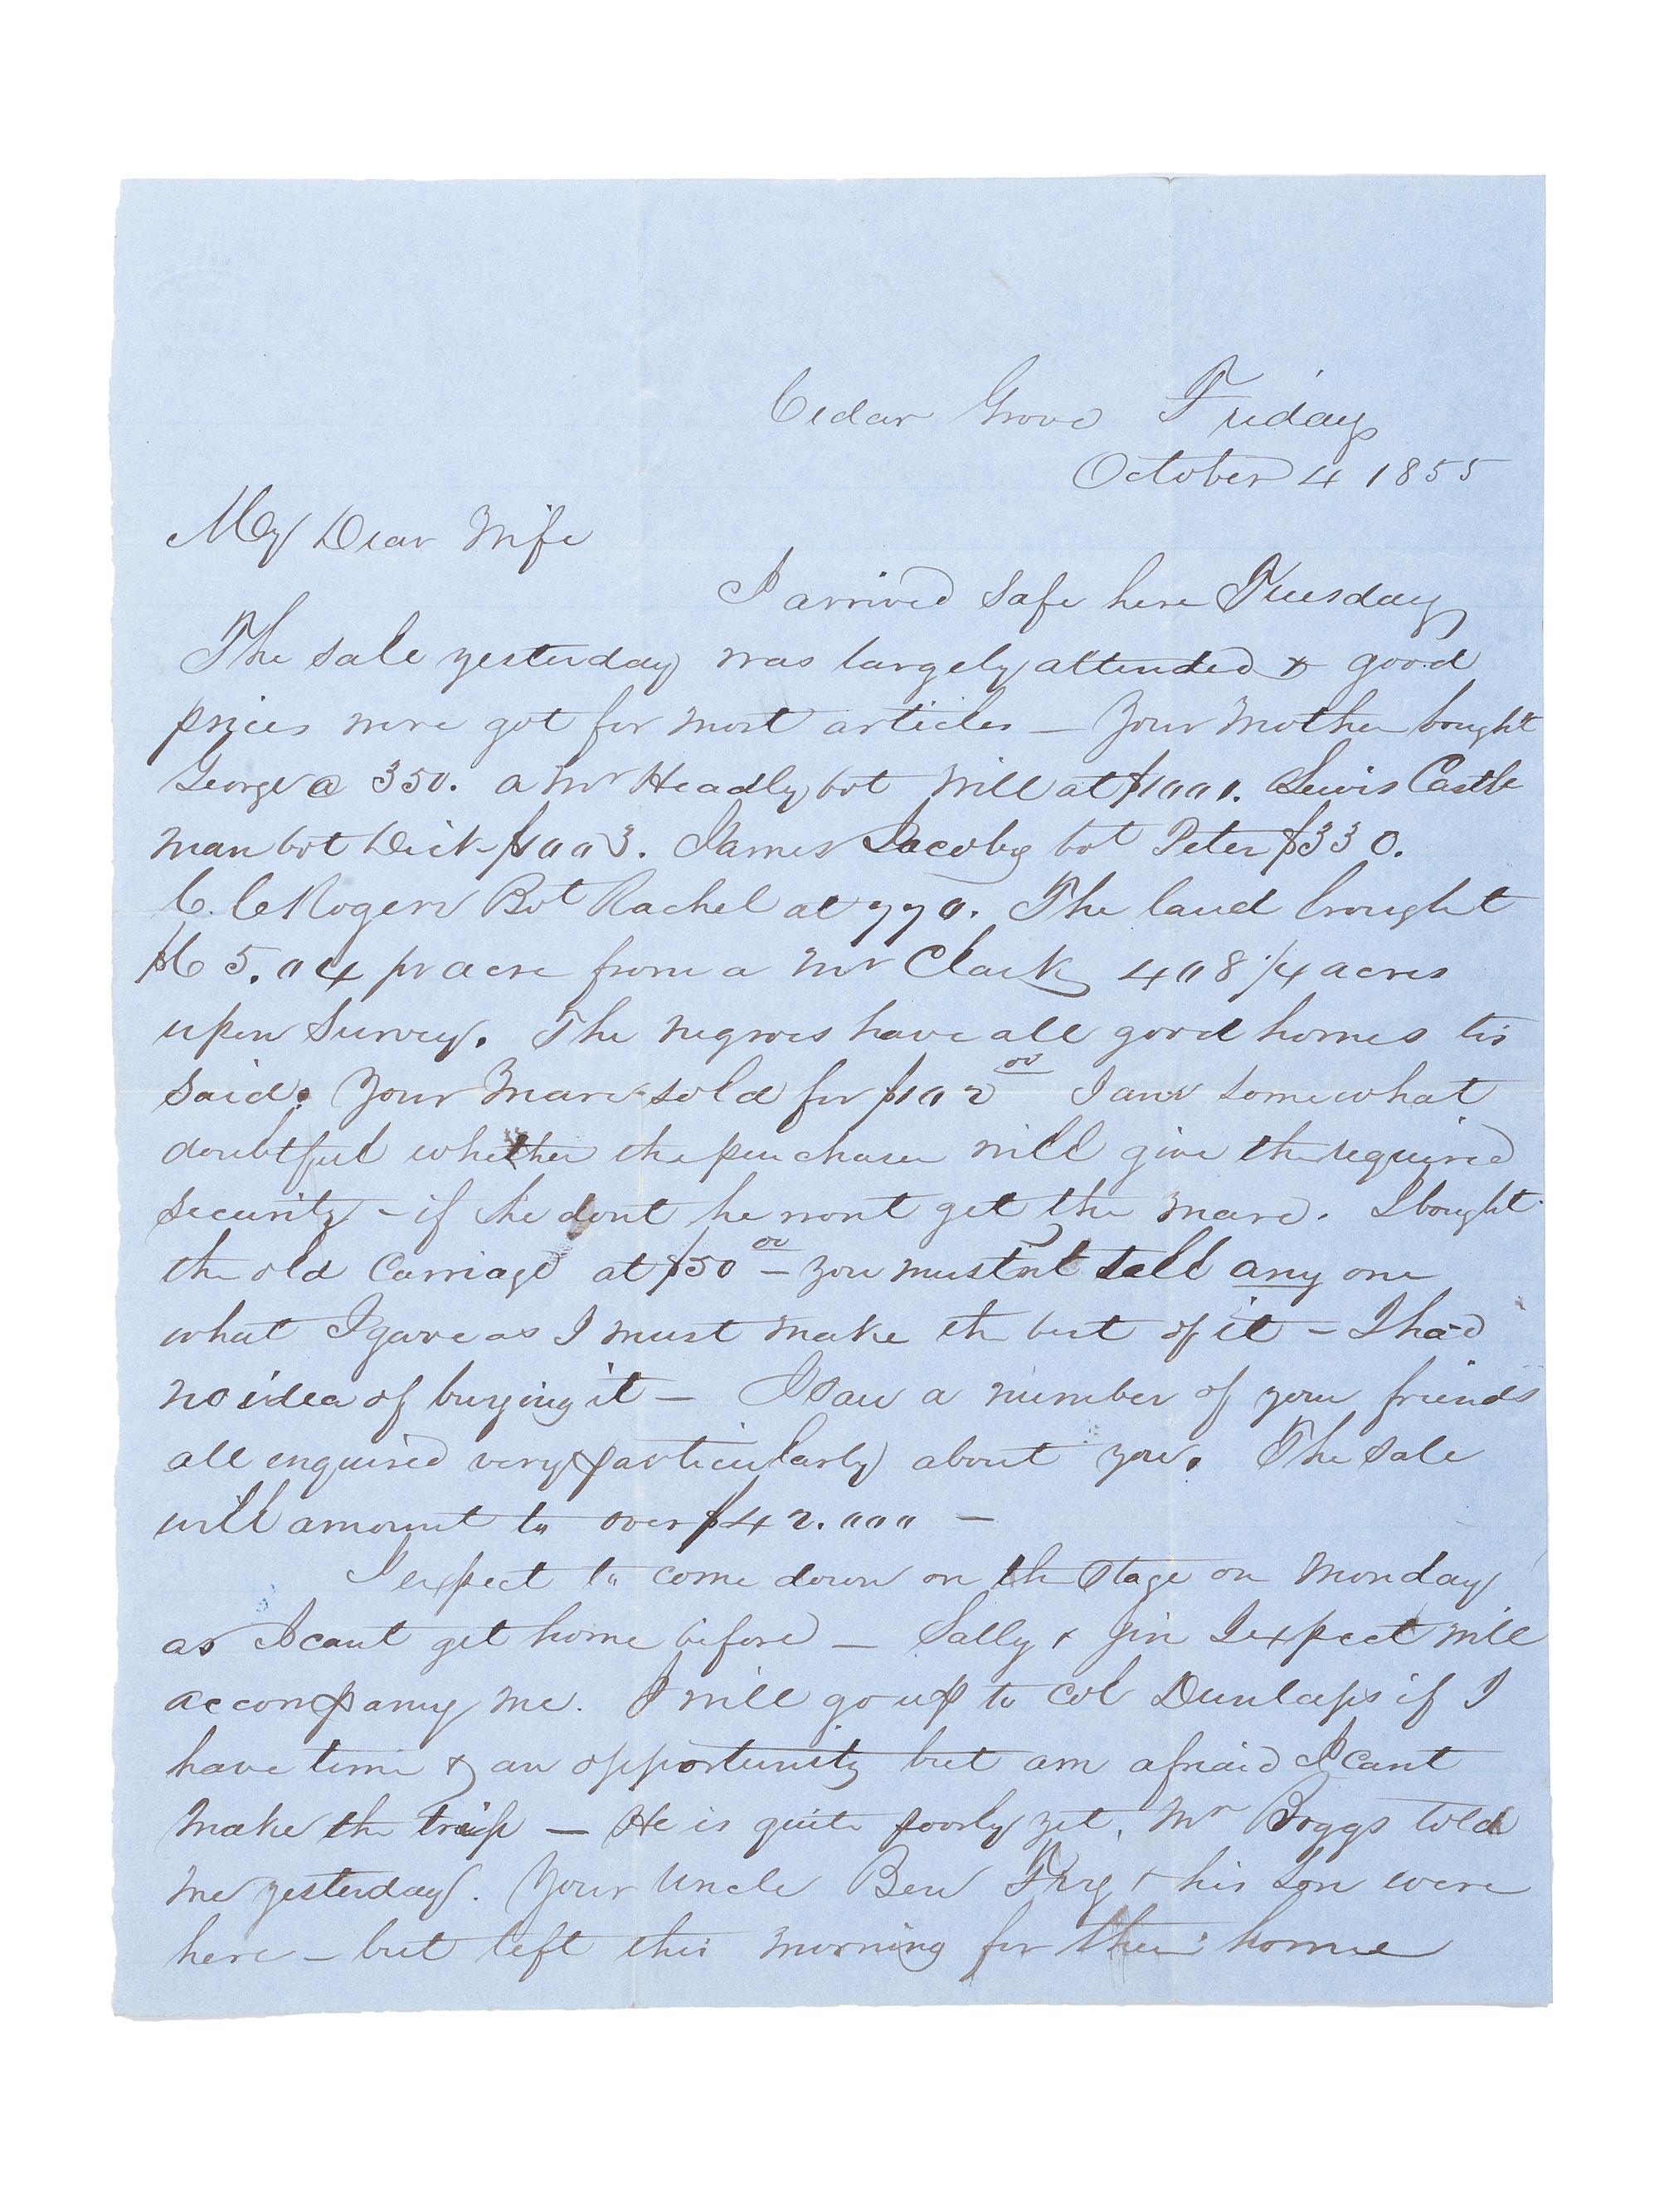 Cedar Grove Friday
October 4 1855
My Dear Wife
I arrived safe here Tuesday
The sale yesterday was largely attended & good
prices were got for most articles – Your Mother bought
George @ 350. a Mr Headly bot Will at $1001. Lewis Castle
man bot Dick $1003. James Jacoby bot Peter $330.
C. C Rogers Bot Rachel at 770. The land brought
$65.04 pr acre from a Mr Clark 408 1/4 acres
upon Survey. The negroes have all good homes tis
said. Your Mare sold for $102 00 I am somewhat
doubtful whether the purchaser will give the required
security – if he dont he wont get the mare. I bought
the old Carriage at $50 00 – you mustnt tell any one
what I gave as I must make the best of it – I had
no idea of buying it – I saw a number of your friends
all enquired very particularly about you. The sale
will amount to over $42.000 –
I expect to come down on the Stage on Monday
as I cant get home before – Sally & Jin I expect will
accompany me. I will go up to Col Dunlaps if I
have time & an opportunity but am afraid I cant
make the trip – He is quite poorly yet, Mr Boggs told
me yesterday. Your Uncle Ben & his Son were
here – but left this morning for their home